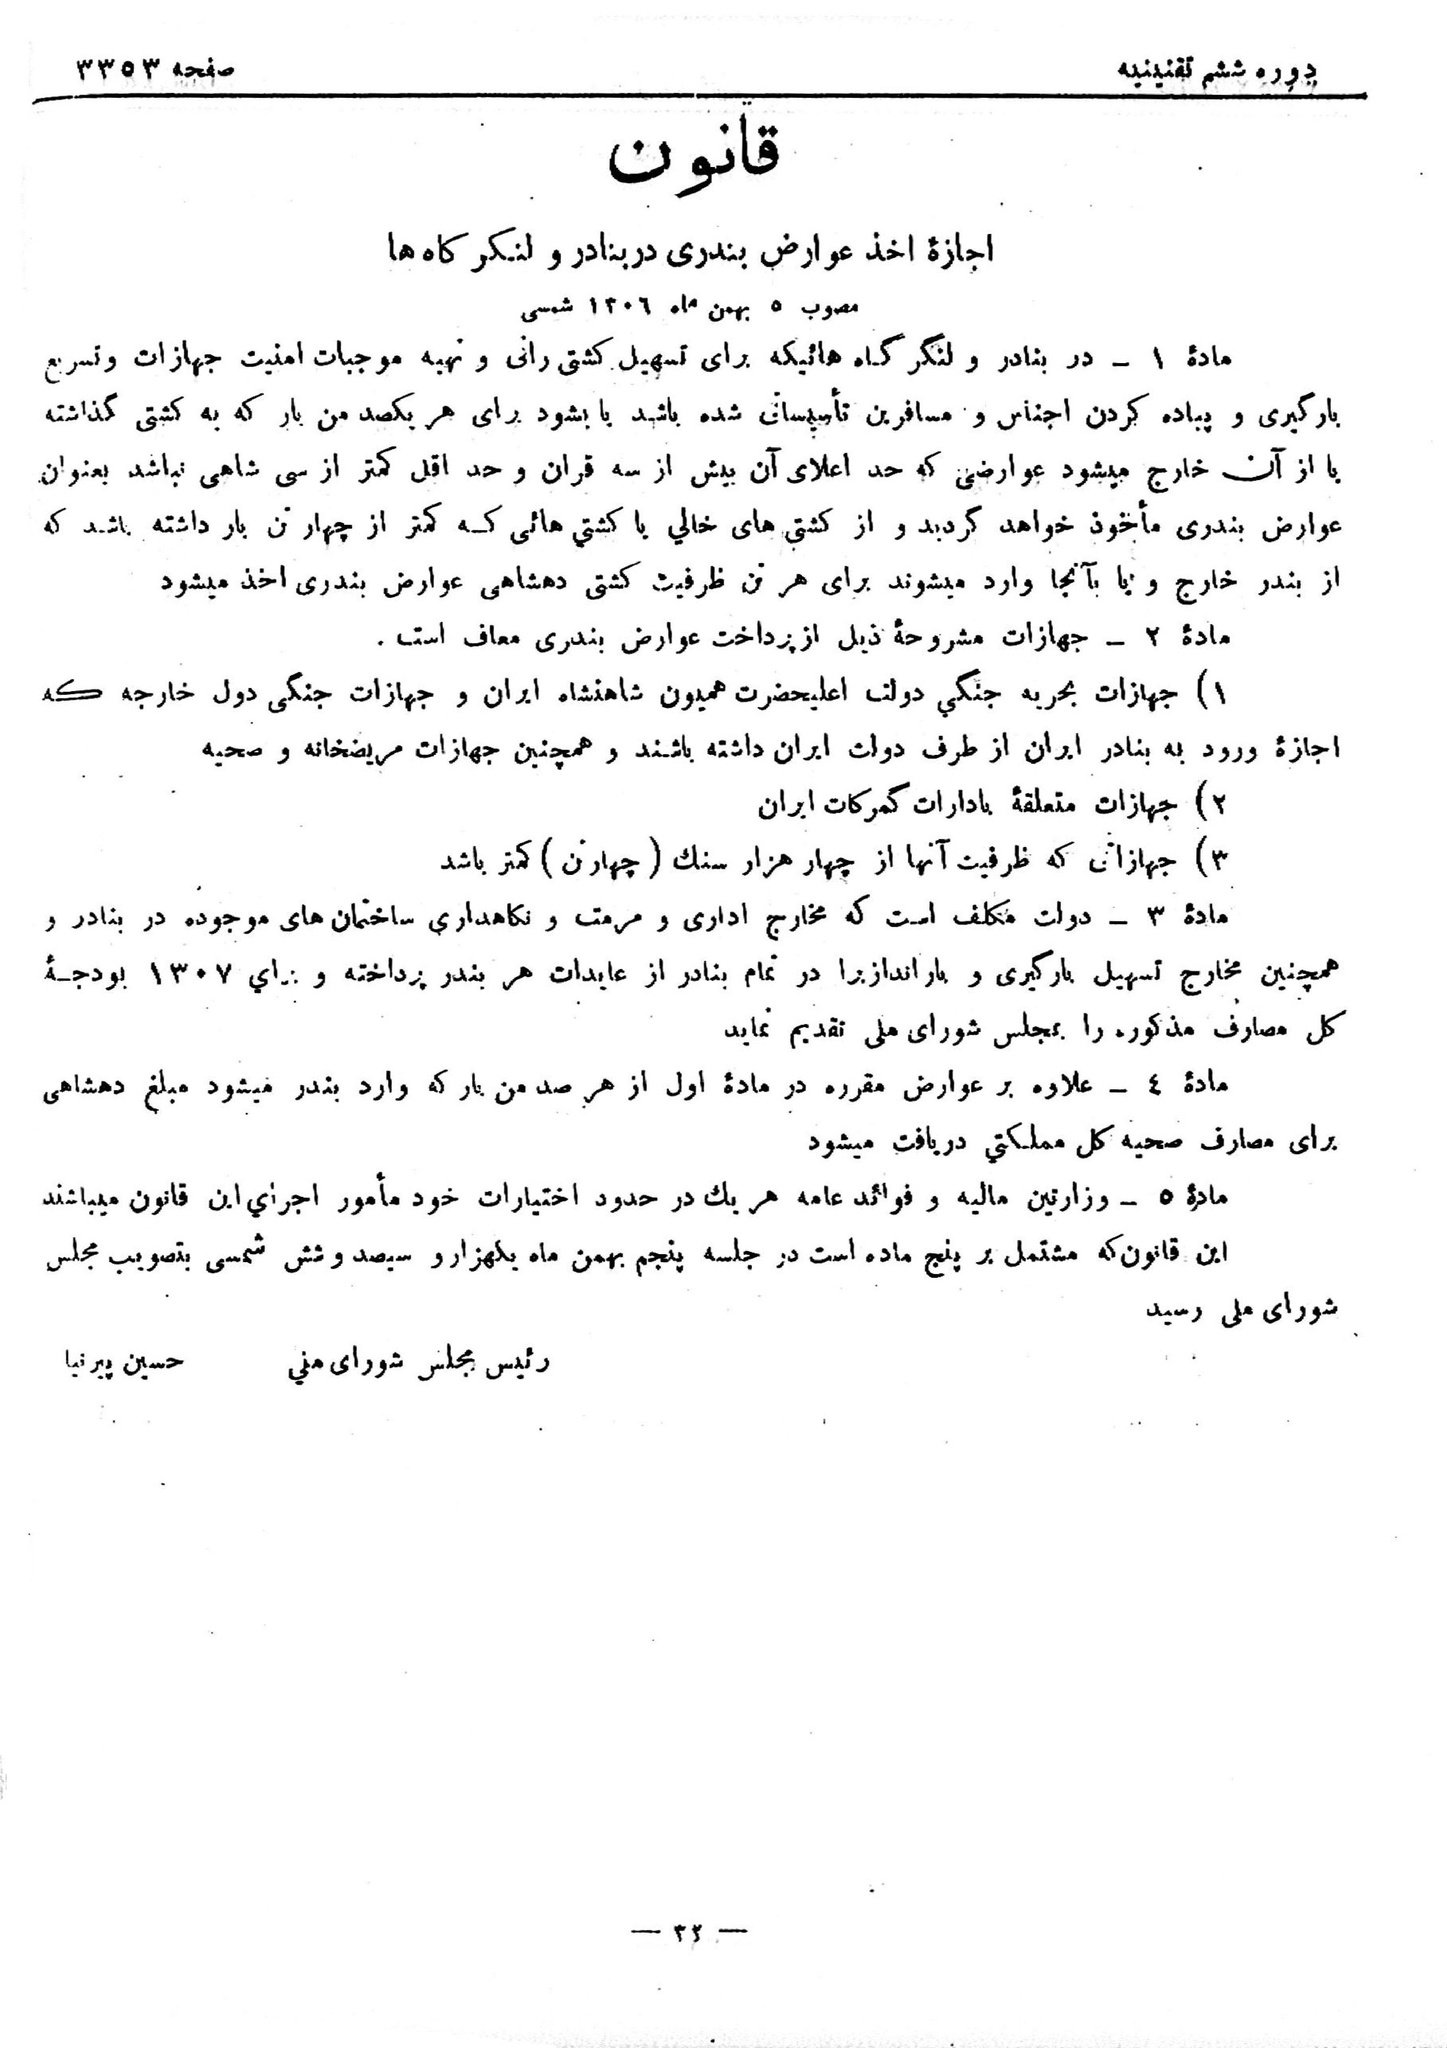 دوره ششم تقنینیه
صفحه ۳۳۵۳
قانون
اجازۀ اخذ عوارض بندری دربنادر و لنگر گاه ها
مصوب ۵ بهمن ماه ۱۳۰۶ شمسی
مادۀ ۱ ـ در بنادر و لنگر گاه هائیکه برای تسهیل کشتی رانی و تهیه موجبات امنیت جهازات و تسریع
بارگیری و پیاده کردن اجناس و مسافرین تأسیساتی شده باشد یا بشود برای هر یکصد من بار که به کشتی گذاشته
یا از آن خارج میشود عوارضی که حد اعلای آن بیش از سه قران و حد اقل کمتر از سی شاهی نباشد بعنوان
عوارض بندری مأخوذ خواهد گردید و از کشتی های خالی یا کشتي هائی کـه کمتر از چهار تن بار داشته باشد که
از بندر خارج و یا بآنجا وارد میشوند برای هر تن ظرفیت کشتی دهشاهی عوارض بندری اخذ میشود
مادۀ ۲ ـ جهازات مشروحۀ ذیل از پرداخت عوارض بندری معاف است .
۱) جهازات بحریه جنگي دولت اعلیحضرت همیون شاهنشاه ایران و جهازات جنگی دول خارجه که
اجازۀ ورود به بنادر ایران از طرف دولت ایران داشته باشند و همچنین جهازات مریضخانه و صحیه
۲) جهازات متعلقۀ بادارات گمرکات ایران
۳) جهازاتی که ظرفیت آنها از چهار هزار سنك ( چهار تن ) کمتر باشد
مادۀ ۳ ـ دولت مکلف است که مخارج اداری و مرمت و نگاهداری ساختمان های موجوده در بنادر و
همچنین مخارج تسهیل بارگیری و بار اندازیرا در تمام بنادر از عایدات هر بندر پرداخته و برای ۱۳۰۷ بودجـۀ
کل مصارف مذکوره را بمجلس شورای ملی تقدیم نماید
مادۀ ٤ ـ علاوه بر عوارض مقرره در مادۀ اول از هر صد من بار که وارد بندر میشود مبلغ دهشاهی
برای مصارف صحیه کل مملکتي دریافت میشود
مادۀ ۵ ـ وزارتین مالیه و فوائد عامه هر یك در حدود اختیارات خود مأمور اجرای این قانون میباشند
این قانون که مشتمل بر پنج ماده است در جلسه پنجم بهمن ماه یکهزار و سیصد و شش شمسی بتصویب مجلس
شورای ملی رسید
رئیس مجلس شورای ملي
حسین پیرنیا
— ۳۲ —